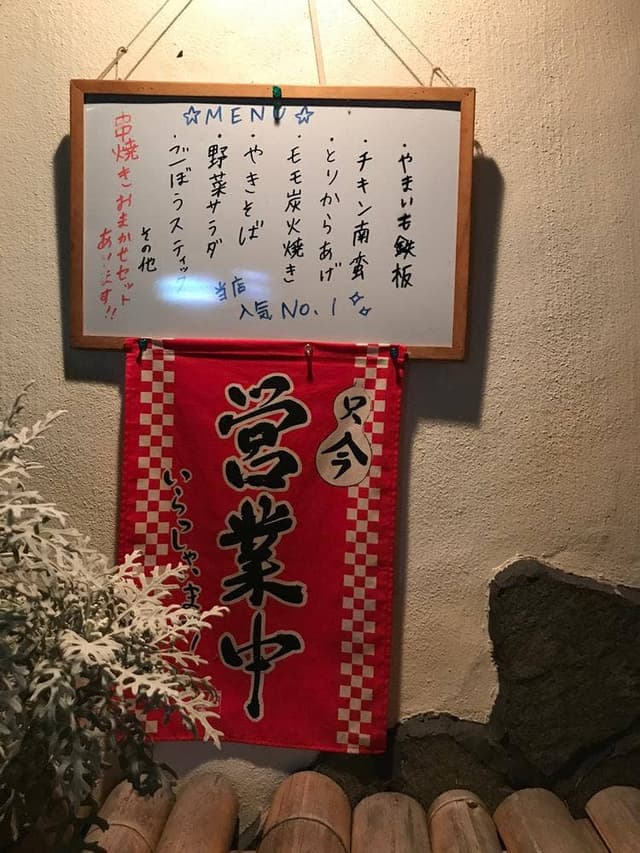 ☆MENU☆
・やまいも鉄板
・チキン南蛮
・とりからあげ
・モモ炭火焼き
・やきそば
・野菜サラダ
・ごぼうスティック
その他
当店
人気 NO.1
串焼きおまかせセット
あります!!
只今
営業中
いらっしゃいませ